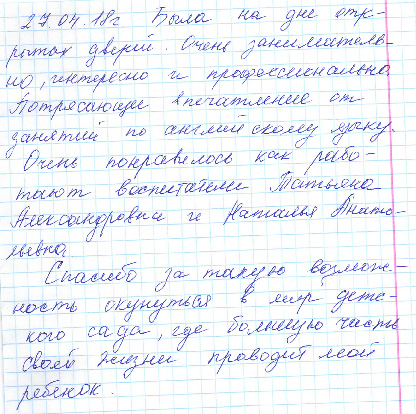 27.04.18г Была на дне откр-
рытых дверей. Очень заниматель-
но, интересно и профессионально.
Потрясающее впечатление от
занятий по английскому языку.
Очень понравилось как рабо-
тают воспитатели Татьяна
Александровна и Наталья Анато-
льевна.
Спасибо за такую возмож-
ность окунуться в мир детс-
кого сада, где большую часть
своей жизни проводит мой
ребенок.